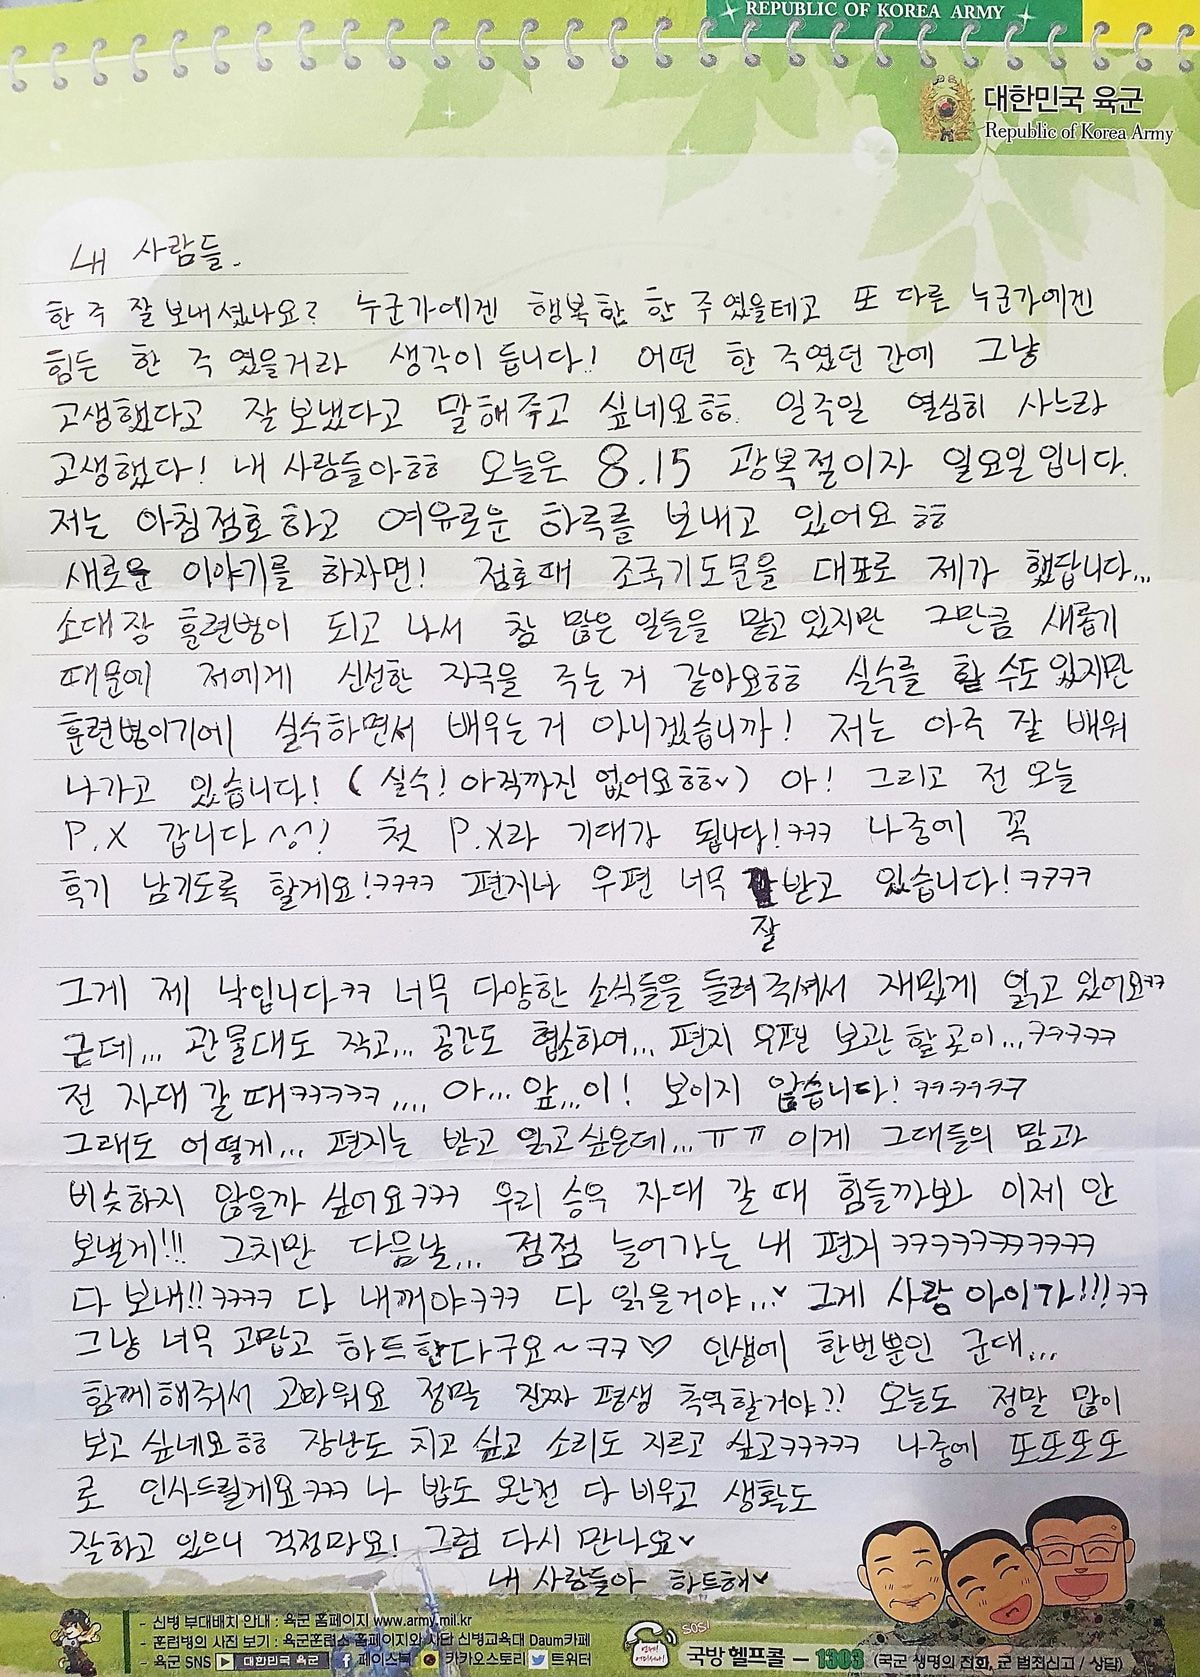 REPUBLIC OF KOREA ARMY
대한민국 육군
Republic of Korea Army
내 사람들.
한 주 잘 보내셨나요? 누군가에겐 행복한 한 주였을테고 또 다른 누군가에겐
힘든 한 주 였을거라 생각이 듭니다! 어떤 한 주였던 간에 그냥
고생했다고 잘 보냈다고 말해주고 싶네요ㅎㅎ. 일주일 열심히 사느라
고생했다! 내 사람들아ㅎㅎ 오늘은 8.15 광복절이자 일요일입니다.
저는 아침점호하고 여유로운 하루를 보내고 있어요 ㅎㅎ
새로운 이야기를 하자면! 점호때 조국기도문을 대표로 제가 했답니다...
소대장 훈련병이 되고 나서 참 많은 일들을 맡고 있지만 그만큼 새롭기
때문에 저에게 신선한 자극을 주는거 같아요ㅎㅎ 실수를 할 수도 있지만
훈련병이기에 실수하면서 배우는거 아니겠습니까! 저는 아주 잘 배워
나가고 있습니다! (실수! 아직까진 없어요ㅎㅎ♥) 아! 그리고 전 오늘
P.X 갑니다^^! 첫 P.X라 기대가 됩니다!ㅋㅋㅋ 나중에 꼭
후기 남기도록 할게요!ㅋㅋㅋㅋ 편지나 우편 너무 받고 있습니다!ㅋㅋㅋㅋ
잘
그게 제 낙입니다ㅋㅋ 너무 다양한 소식들을 들려주셔서 재밌게 읽고 있어요ㅋㅋ
근데... 관물대도 작고... 공간도 협소하여... 편지 우편 보관 할 곳이...ㅋㅋㅋㅋㅋ
전 자대 갈 때ㅋㅋㅋㅋㅋ.... 아... 앞...이! 보이지 않습니다! ㅋㅋㅋㅋㅋㅋ
그래도 어떻게... 편지는 받고 읽고싶은데...ㅠㅠ 이게 그대들의 맘과
비슷하지 않을까 싶어요ㅋㅋㅋ 우리 승우 자대 갈 때 힘들까봐 이제 안
보낼게!!! 그치만 다음날... 점점 늘어가는 내 편지 ㅋㅋㅋㅋㅋㅋㅋㅋㅋㅋㅋ
다 보내!!ㅋㅋㅋㅋ 다 내꺼야ㅋㅋㅋ 다 읽을거야...♥ 그게 사랑 아이가!!!ㅋㅋ
그냥 너무 고맙고 하트한다구요~ㅋㅋ♡ 인생에 한번뿐인 군대...
함께해줘서 고마워요 정말 진짜 평생 추억할거야?! 오늘도 정말 많이
보고 싶네요ㅎㅎ 장난도 치고 싶고 소리도 지르고 싶고ㅋㅋㅋㅋㅋ 나중에 또또또또
로 인사드릴게요ㅋㅋㅋ 나 밥도 완전 다 비우고 생활도
잘하고 있으니 걱정마요! 그럼 다시 만나요♥
내 사람들아 하트해♥
- 신병 부대배치 안내 : 육군 홈페이지 www.army.mil.kr
- 훈련병의 사진 보기 : 육군훈련소 홈페이지와 사단 신병교육대 Daum카페
- 육군 SNS 대한민국 육군 페이스북 카카오스토리 트위터
SOS!
국방헬프콜 - 1303 (국군 생명의 전화, 군 범죄신고 / 상담)